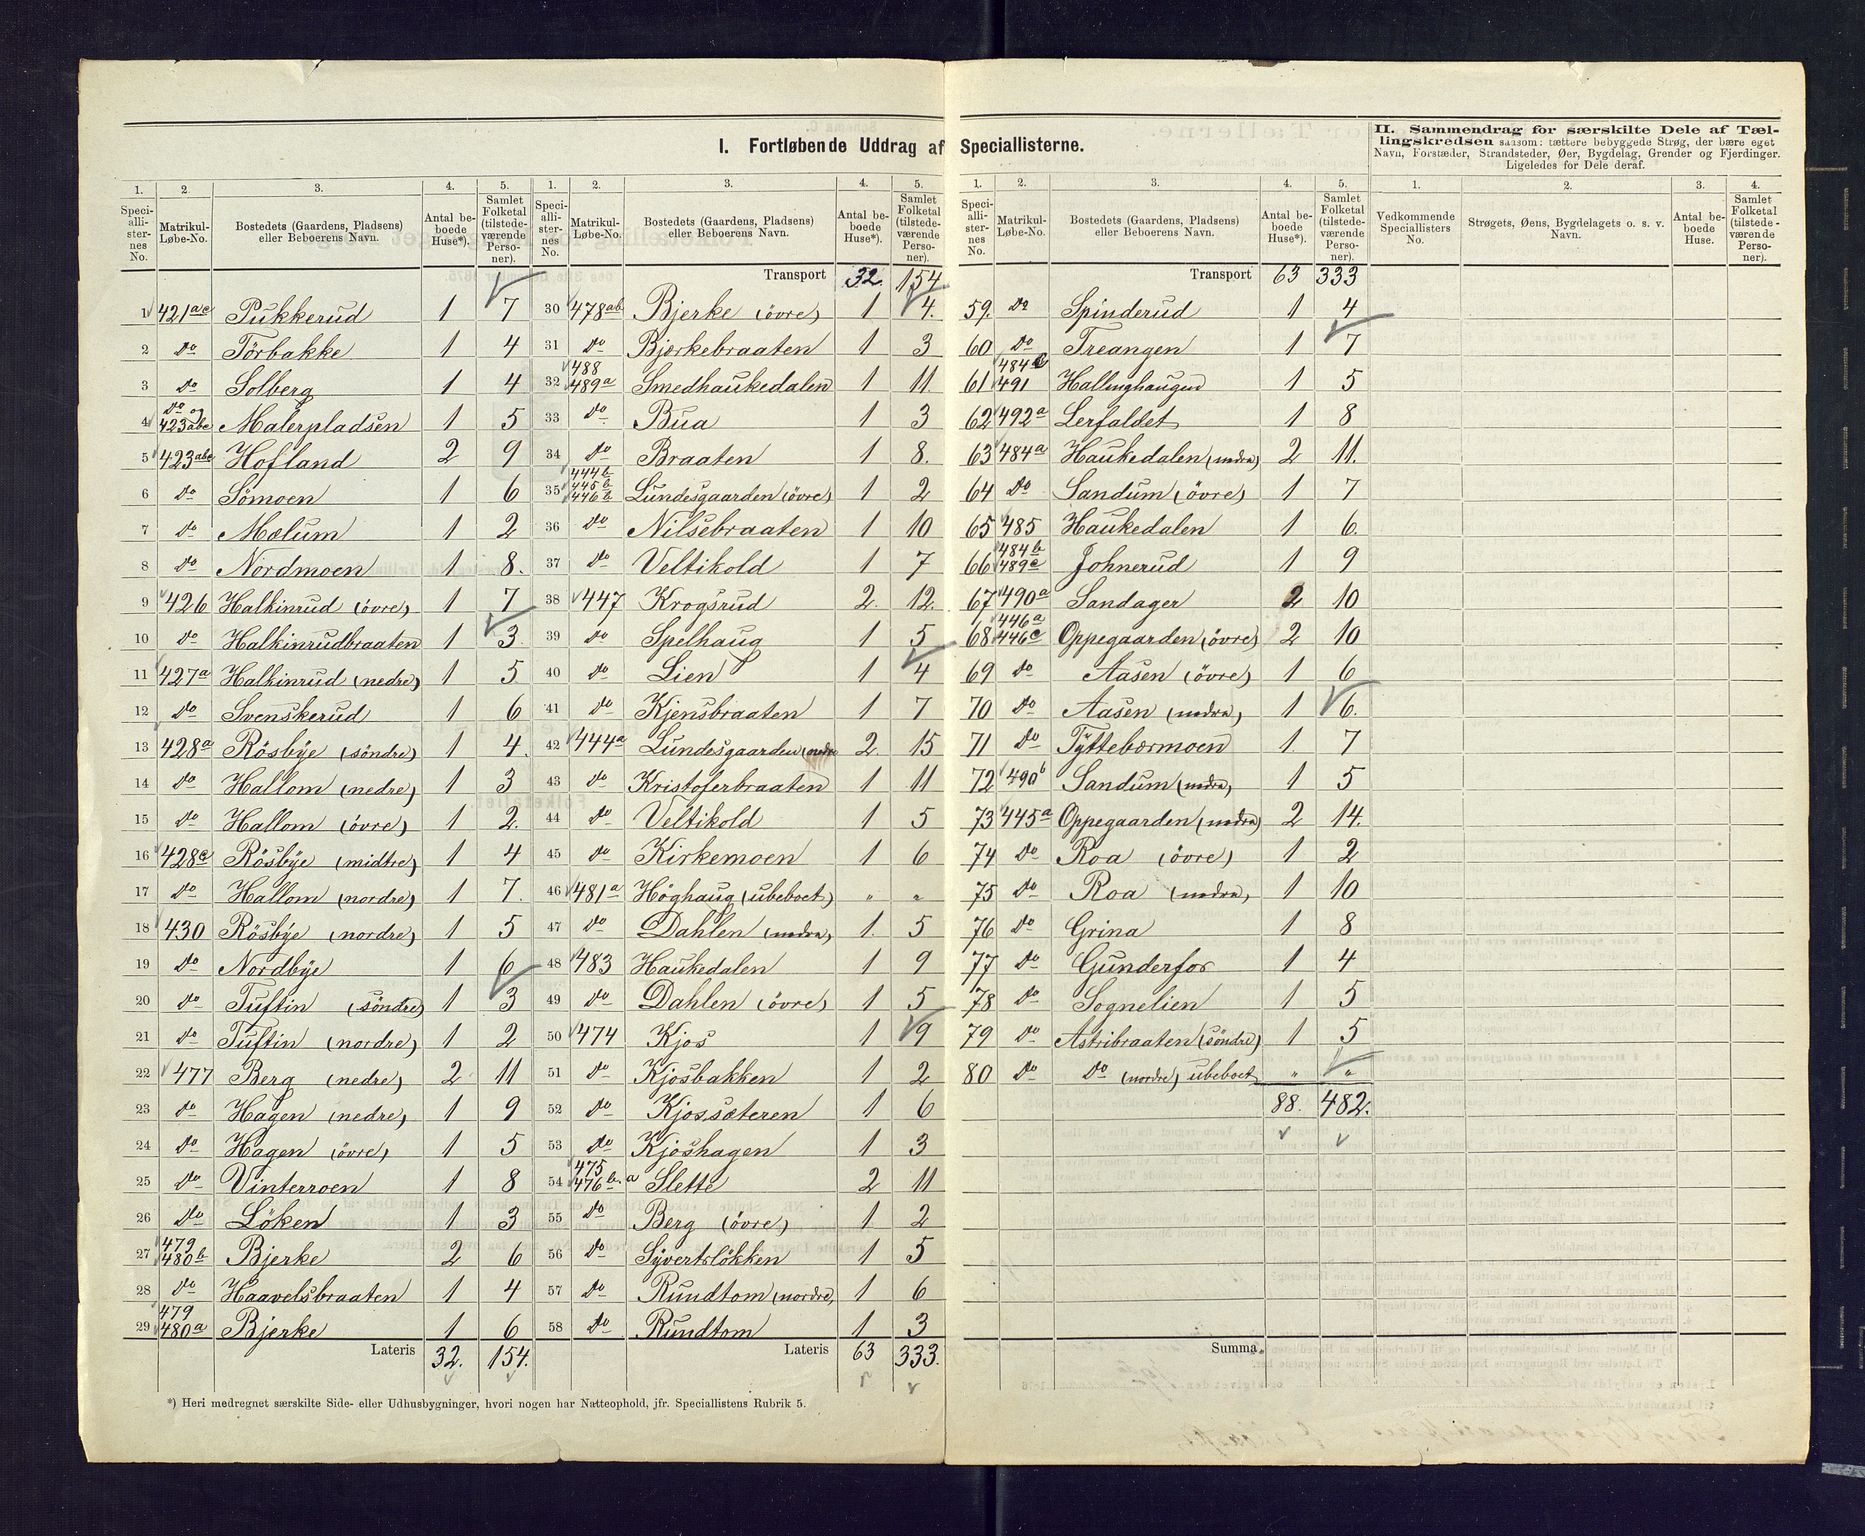 I. Fortløbende Uddrag af Speciallisterne.
II. Sammendrag for særskilte Dele af Tæl-
lingskredsen saasom: tættere bebyggede Strøg, der bære eget
Navn, Forstæder, Strandsteder, Øer, Bygdelag, Grender og Fjerdinger.
Ligeledes for Dele deraf.
1. 2 3. 4. 5.
Speciallisternes No. Matrikul-Løbe-No. Bostedets (Gaardens, Pladsens) eller Beboerens Navn. Antal beboede Huse*). Samlet Folketal (tilstedeværende Personer).
1 421ac Pukkerud 1 7
2 do Törbakke 1 4
3 do Solberg 1 4
4 do og 423abc Malerpladsen 1 5
5 423abc Hofland 2 9
6 do Sömoen 1 6
7 do Mælum 1 2
8 do Nordmoen 1 8.
9 426 Halkinrud (övre) 1 7
10 do Halkinrudbraaten 1 3.
11 427a Halkinrud (nedre) 1 5
12 do Svenskerud 1 6
13 428a Rösbye (söndre) 1 4.
14 do Hallom (nedre) 1 3
15 do Hallom (övre) 1 2.
16 428c Rösbye (midtre) 1 4
17 do Hallom (nordre) 1 7.
18 430 Rösbye (nordre) 1 5
19 do Nordbye 1 6
20 do Tuftin (söndre) 1 3
21 do Tuftin (nordre) 1 2
22 477 Berg (nedre) 2 11
23 do Hagen (nedre) 1 9
24 do Hagen (övre) 1 5
25 do Vinterroen 1 8
26 do Löken 1 3
27 479 480b Bjerke 2 6
28 do Haavelsbraaten 1 4
29 479 480a Bjerke 1 6
Lateris 32. 154.
1. 2. 3. 4. 5.
Speciallisternes No. Matrikul-Løbe-No. Bostedets (Gaardens, Pladsens) eller Beboerens Navn. Antal beboede Huse*). Samlet Folketal (tilstedeværende Personer).
Transport 32. 154
30 478ab Bjerke (övre) 1 4.
31 do Bjerkebraaten 1 3
32 488 489a Smedhaukedalen 1 11
33 do Bua 1 3
34 do Braaten 1 8.
35 444b 445b 446b Lundesgaarden (övre) 1 2
36 do Nilsebraaten 1 10
37 do Veltikold 1 7
38 447 Krogsrud 2. 12.
39 do Spelhaug 1 5
40 do Lien 1 4
41 do Kjensbraaten 1 7
42 444a Lundesgaarden (nedre 2. 15
43 do Kristoferbraaten 1 11
44 do Veltikold 1 5
45 do Kirkemoen 1 6
46 481a Höghaug (ubeboet) " "
47 do Dahlen (nedre) 1. 5
48 483 Haukedalen 1 9
49 do Dahlen (övre) 1 5
50 474 Kjos 1 9
51 do Kjosbakken 1 2
52 do Kjossæteren 1 6
53 do Kjoshagen 1 3
54 475 476b.a Slette 2 11
55 do Berg (övre) 1. 2
56 do Syvertslökken 1 5
57 do Rundtom (nordre) 1 6
58 do Rundtom 1 3
Lateris 63 333.
1. 2. 3. 4. 5.
Speciallisternes No. Matrikul-Løbe-No. Bostedets (Gaardens, Pladsens) eller Beboerens Navn. Antal beboede Huse*). Samlet Folketal (tilstedeværende Personer).
Transport 63 333
59. do Spinderud 1 4
60 do Treangen 1 7
61 491 Hallinghaugen 1 5
62 492a Lerfaldet 1 8
63 484a Haukedalen (nedre) 2 11.
64 do Sandum (övre) 1 7
65 485 Haukedalen 1 6.
66 484b 489c Johnerud 1 9
67 490a Sandager 2 10
68 446a 446c Oppegaarden (övre) 2 10
69 do Aasen (övre) 1 6
70 do Aasen (nedre) 1 6.
71 do Tyttebærmoen 1. 7
72 490b Sandum (nedre) 1 5
73 445a Oppegaarden (nedre) 2 14.
74 do Roa (övre) 1 2
75 do Roa (nedre) 1 10
76 do Grina 1 8
77 do Gunderfos 1 4
78 do Sognelien 1 5
79 do Astribraaten (söndre) 1 5
80 do do (nordre) ubeboet " "
88. 482.
Summa.
1. 2. 3. 4.
Vedkommende Speciallisters No. Strøgets, Øens, Bygdelagets o. s. v. Navn. Antal beboede Huse. Samlet Folketal (tilstedeværende Personer).
*) Heri medregnet særskilte Side- eller Udhusbygninger, hvori nogen har Natteophold, jfr. Speciallistens Rubrik 5.